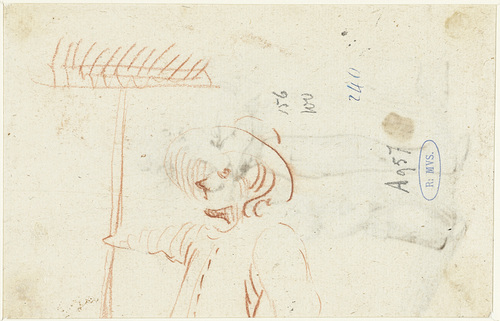 156
100
240
A957
R: MVS.